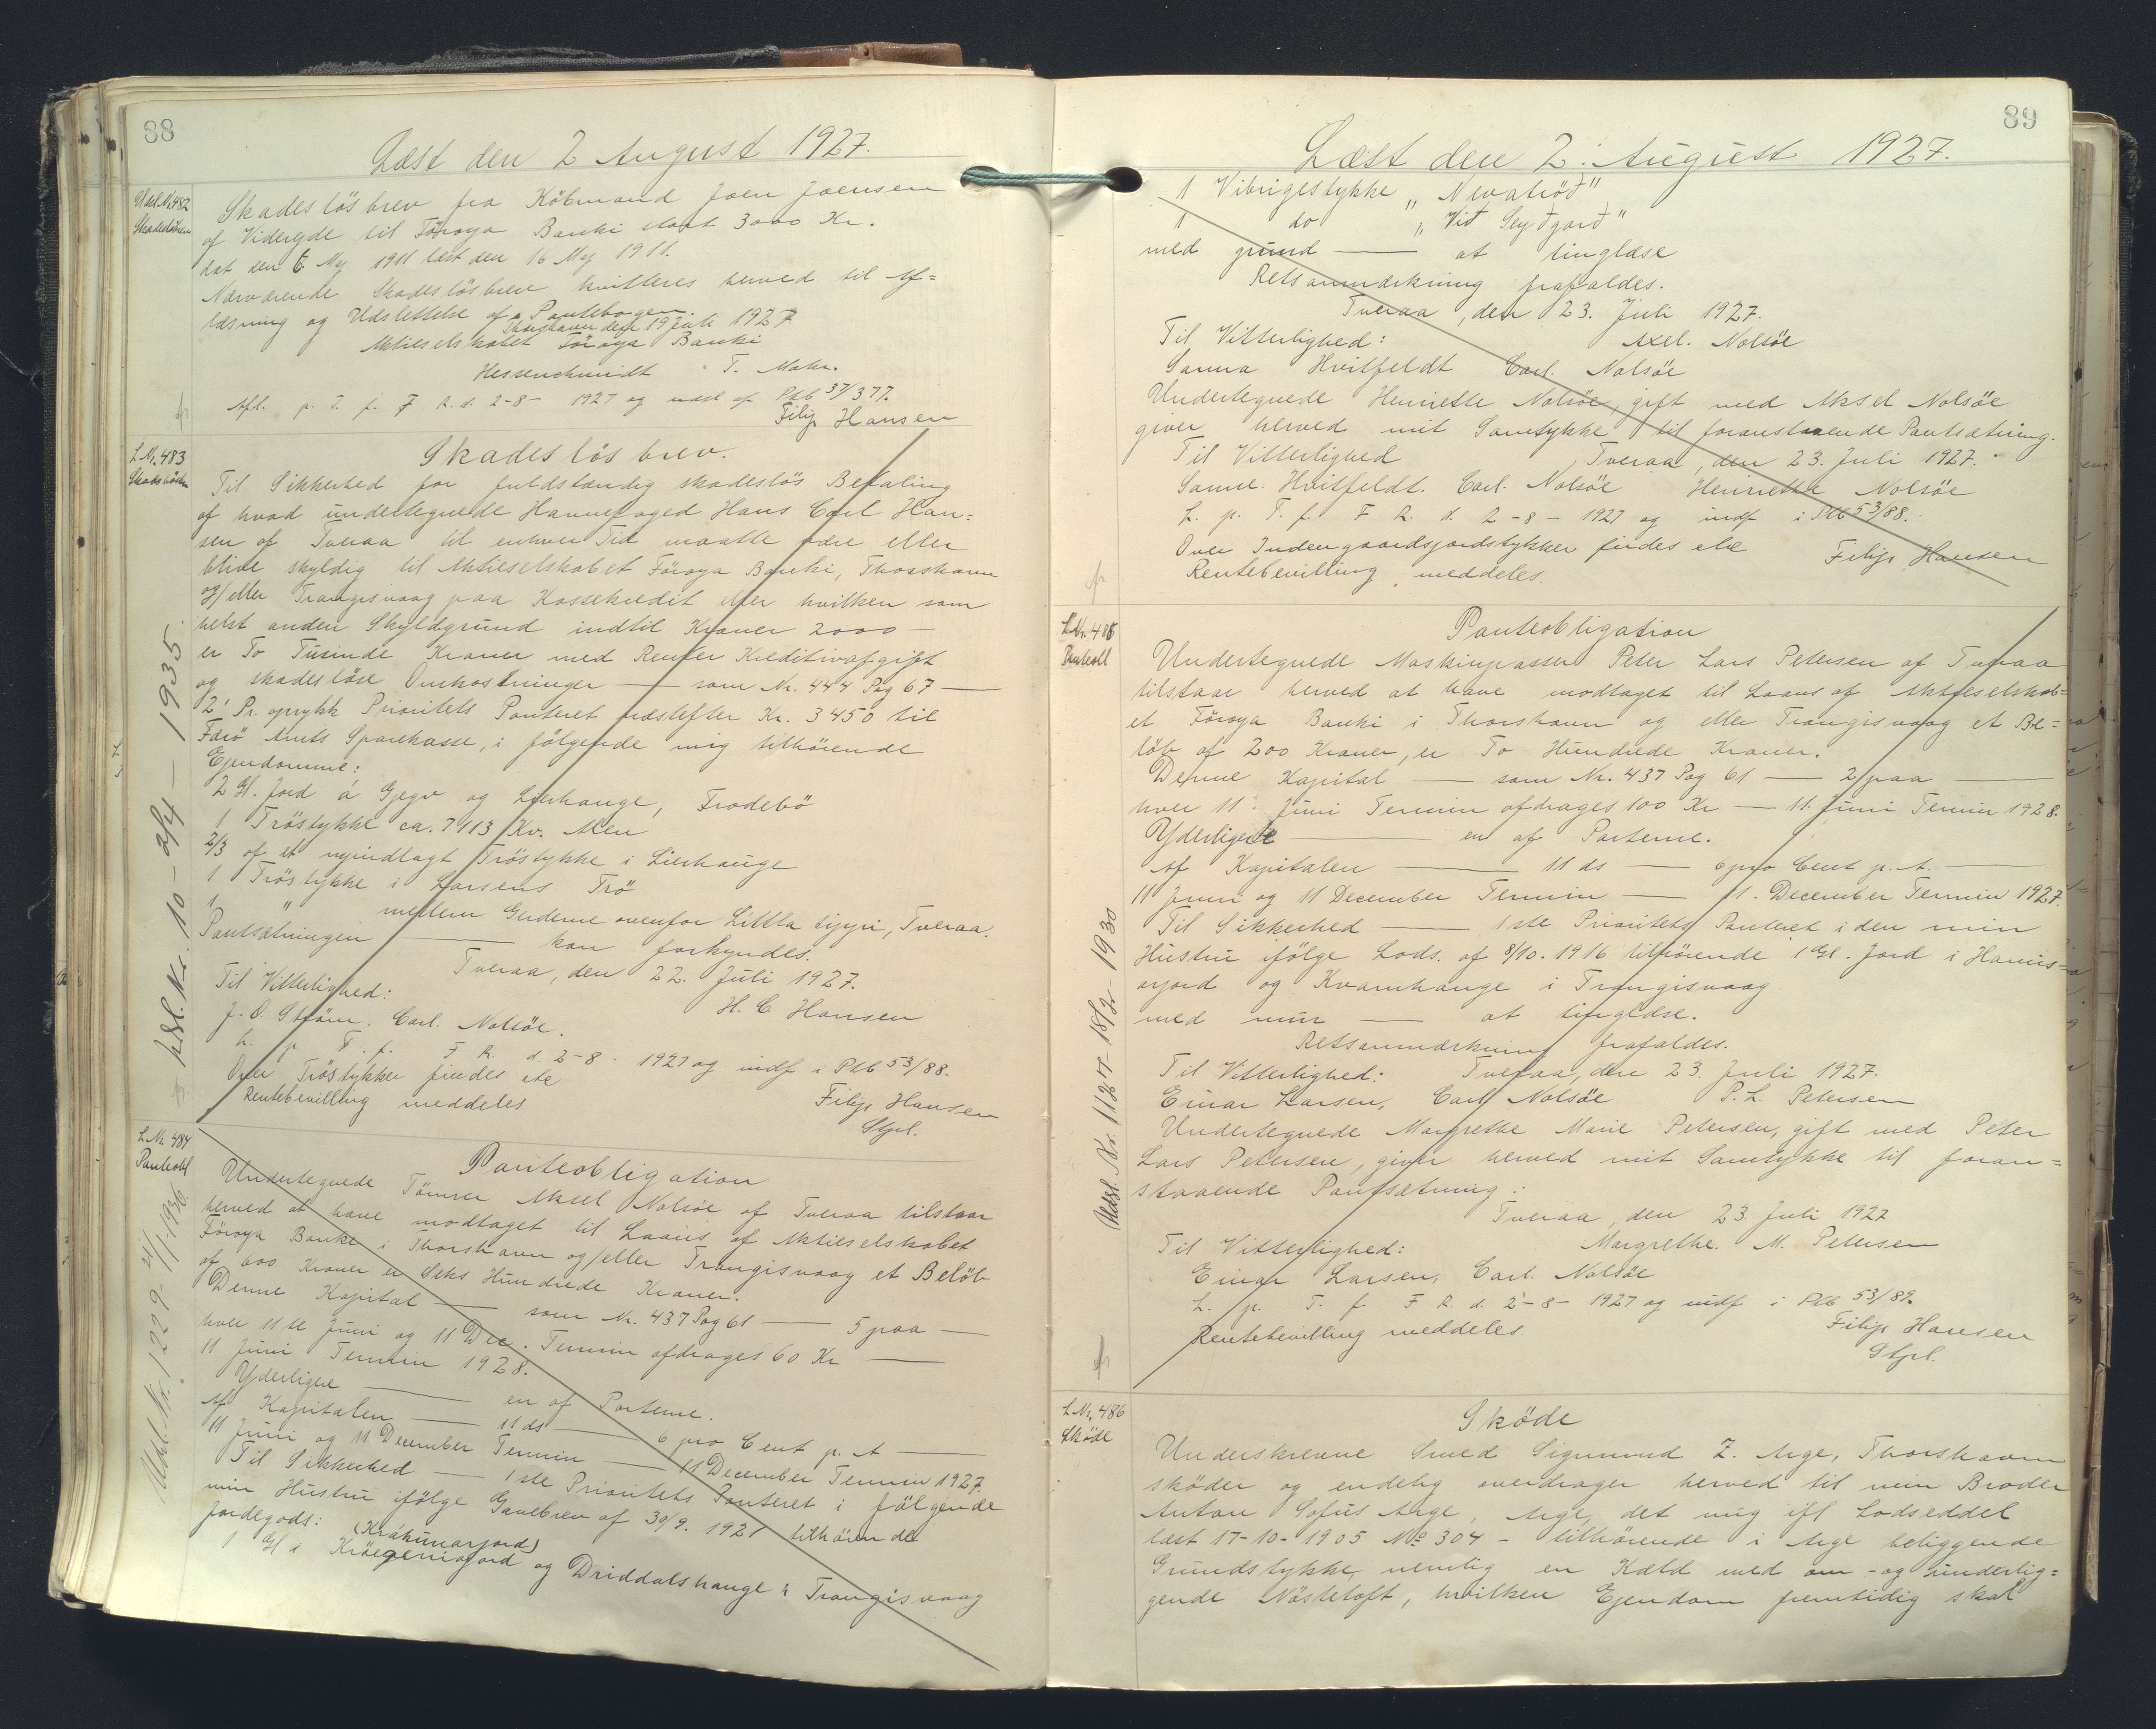 88
Læst den 2 August 1927.
Udsl. Nr. 482
Skadeslösbrev
Skadeslösbrev fra Köbmand Joen Joensen
af Viderejde til Föroya Banki stort 3000 Kr.
dat den 6 Maj 1911 læst den 16 Maj 1911.
Nærværende Skadeslösbrev kvitteres herved til Af=
læsning og Udslettelse af Pantebogen.
Thorshavn den 19 Juli 1927
Aktieselskabet Föroya Banki
Hessenschmidt T. Mohr.
Afl. p. T. f. F R. d. 2-8- 1927 og udsl af Ptb 37/377.
Filip Hansen
L Nr. 483
Skadeslösbrev
Skadeslösbrev.
Til Sikkerhed for fuldstændig skadeslös Betaling
af hvad undertegnede Havnefoged Hans Carl Han=
sen af Tveraa til enhver Tid maatte være eller
blive skyldig til Aktieselskabet Föroya Banki, Thorshavn
og/eller Trangisvaag paa Kassekredit eller hvilken som
helst anden Skyldgrund indtil Kroner 2000 —
er To Tusinde Kroner med Renter Kreditivafgift
og skadeslöse Omkostninger — som Nr. 444 Pag 67 —
2' Pr. oprykk Prioritets Panteret næstefter Kr. 3450 til
Færö Amts Sparekasse, i fölgende mig tilhörende
Ejendomme:
2 Gl. Jord á Gjegv og Lierhauge, Frodebö
1 Tröstykke ca. 7113 Kv. Alen
2/3 af et nyindlagt Tröstykke i Lierhauge
1 Tröstykke i Larsens Trö
1 " mellem Gerderne ovenfor Littla tjypi, Tveraa.
Pantsætningen — kan forkyndes.
Tveraa, den 22. Juli 1927.
Til Vitterlighed:
H. C Hansen
J. O. Ström. Carl. Nolsöe.
L. p. T. f. F R. d. 2-8- 1927 og indf i Ptb 53/88.
Over Tröstykker findes ete
Rentebevilling meddeles
Filip Hansen
Stpl.
Udsl. Nr. 10 - 2/4 — 1935
L Nr. 484
Panteobl
Panteobligation
Undertegnede Tömrer Aksel Nolsöe af Tveraa tilstaar
herved at have modtaget til Laans af Aktieselskabet
Föroya Banki i Thorshavn og/eller Trangisvaag et Belöb
af 600 Kroner er Seks Hundrede Kroner.
Denne Kapital — som Nr. 437 Pag 61 — 5 paa —
hver 11 te Juni og 11 Dec. Termin afdrages 60 Kr —
11 Juni Termin 1928.
Yderligere — en af Parterne.
Af Kapitalen — 11 ds — 6 pro Cent p. A —
11 Juni og 11 December Termin — 11 December Termin 1927.
Til Sikkerhed — 1ste Prioritets Panteret i fölgende
min Hustru ifölge Gavebrev af 30/9. 1921 tilhörende
Jordegods:
(Krákunarjord)
1 Gl i Kröegeniajord og Driddalshauge i Trangisvaag
Udsl. Nr. 1229 - 21/11-1936
89
Læst den 2' August 1927.
1 Vibrigestykke „Nevatröð"
1 do „Við Seyðgarð"
med grund — at tinglæse
Retsanmærkning frafaldes.
Tveraa, den 23. Juli 1927.
Til Vitterlighed: Axel. Nolsöe
Sanna Hvitfeldt Carl. Nolsöe
Undertegnede Henriette Nolsöe, gift med Aksel Nolsöe
giver herved mit Samtykke til foranstaaende Pantsætning.
Til Vitterlighed Tveraa, den 23. Juli 1927.
Sanna. Hvitfeldt. Carl. Nolsöe Henriette Nolsöe
L. p. T. f. F R. d. 2-8- 1927 og indf i Ptb 53/88.
Over Indengaardsjordstykker findes ete
Filip Hansen
Rentebevilling meddeles.
L Nr. 485
Panteobl
Panteobligation
Undertegnede Maskinpasser Peter Lars Petersen af Tveraa
tilstaar herved at have modtaget til Laans af Aktieselskab=
et Föroya Banki i Thorshavn og eller Trangisvaag et Be=
löb af 200 Kroner, er To Hundrede Kroner.
Denne Kapital — som Nr. 437 Pag 61 — 2 paa —
hver 11' Juni Termin afdrages 100 Kr — 11. Juni Termin 1928.
Yderligere — en af Parterne.
Af Kapitalen — 11 ds — 6 pro Cent p. A.
11 Juni og 11 December Termin — 11. December Termin 1927.
Til Sikkerhed — 1ste Prioritets Panteret i den min
Hustru ifölge Lods. af 8/10. 1916 tilhörende 1 Gl. Jord i Hanus=
arjord og Kvamhauge i Trangisvaag
med min — at tinglæse.
Retsanmærkning frafaldes.
Til Vitterlighed: Tveraa, den 23. Juli 1927.
Einar Larsen, Carl Nolsöe P. L. Petersen
Undertegnede Margrethe Marie Petersen, gift med Peter
Lars Petersen, giver herved mit Samtykke til foran=
staaende Pantsætning:
Tveraa, den 23. Juli 1927
Til Vitterlighed: Margrethe. M. Petersen
Einar Larsen, Carl. Nolsöe
L. p. T. f. F R. d. 2-8- 1927 og indf i Ptb 53/89.
Rentebevilling meddeles.
Filip Hansen
Stpl.
L Nr. 486
Sköde
Sköde
Underskrevne Smed Sigmund Z. Arge, Thorshavn
sköder og endelig overdrager herved til min Broder
Anton Sofus Arge, Arge, det mig ifl Lodseddel
læst 17-10-1905 No 304 - tilhörende i Arge beliggende
Grundstykke, nemlig en Kæld med om- og underlig=
gende Nöstetoft, hvilken Ejendom fremtidig skal